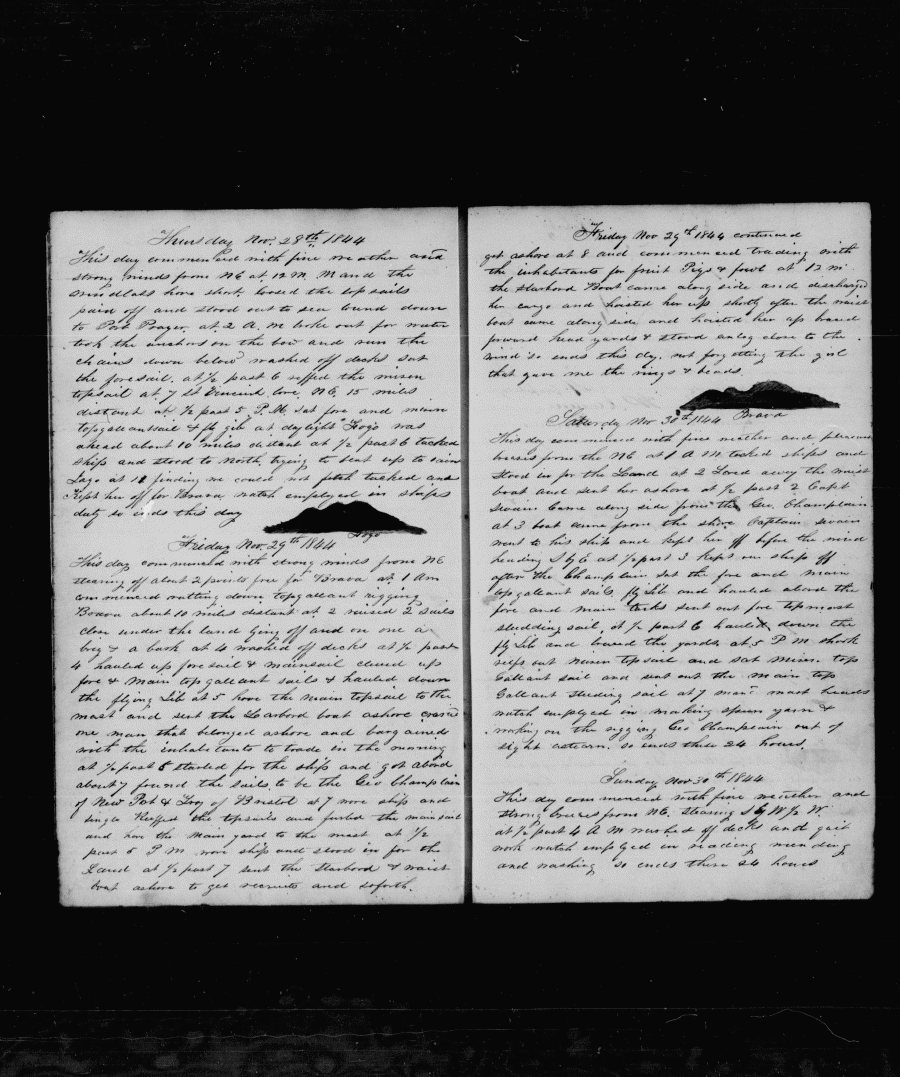 Thursday Nov. 28th 1844
This day commenced with fine weather and
strong winds from NE at 12 M Mand the
windlass hove short. loosed the top sails
paid off and stood out to sea bound down
to Port Prager. at 2 A. M broke out for water
took the anchors on the bow and run the
chains down below washed off decks sat
the foresail. at ½ past 6 reffed the mizen
topsail at 7 St Vincent bore. NE, 15 miles
distant at ½ past 5 P.M. sat fore and main
topgallantsail & fly gib at daylight Fogo was
ahead about 10 miles distant at ½ past 6 tacked
ships and stood to North, trying to beat up to Saint
Jago at 11 finding we could not fetch tacked and
Kept her off for Brava watch employed in ships
duty so ends this day
Fogo
Friday Nov. 29th 1844
This day commenced with strong winds from NE
stearing off about 2 points free for Brava at 1 Am
commenced rutting down topgallant rigging
Brava about 10 miles distant at 2 raised 2 sails
close under the land lying off and on one a
brig & a bark at 4 washed off decks at ½ past
4 hauled up foresail & mainsail clewed up
fore & main topgallant sails & hauled down
the flying Jib at 5 hove the main topsail to the
mast and sent the Larbord boat ashore
one man that belonged ashore and bargained
with the inhabitants to trade in the morning
at ½ past 5 started for the ship and got abord
about 7 found the sails to be the Geo Champlain
of New Port & Troy of Bristol at 7 wore ship and
Reffed the topsails and furled the mainsail
and have the Main yard to the mast at ½
past 5 P M wore ship and stood in for the
Land at ½ past 7 sent the Starbord & waist
boat ashore to get recruits and soforth.
Friday Nov 29th 1844 continued
got ashore at 8 and commenced trading with
the inhabetants for fruit Pigs & fowls at 12 m
the Starbord Boat came along side and discharged
her cargo and hoisted her up shortly after the waist
boat came along side and hoisted her up braced
forward head yards & stood along close to the
wind so ends this day. not forgetting the girl
that gave me the rings & beads.
Brava
Saturday Nov 30th 1844
This day commenced with fine wether and pleasant
breeses from the NE at 1 A M tacked ships and
stood in for the Land at 2 Loed away the waist
boat and sent her ashore at ½ past 2 Capt
Swain Came along side from the Geo. Champlain
at 3 boat came from the shore Captain Swain
went to his ship and kept her off before the wind
heading S by E at ½ past 3 Kept our ship off
after the Champlain sat the fore and main
topgallant sails, fly Jib and hauled abord the
fore and main tacks sent out fore topmast
studding sail, at ½ past 6 hauled down the
fly Jib and braced the yards, at 5 P M shook
reefs out mizen topsail and sat mizen top
Gallant sail and sent out the main top
Gallant studing sail at 7 man mast heads
watch employed in making spun yarn &
working on the rigging Geo Champlain out of
sight astearn. so ends these 24 hours,
Sunday Nov 30th 1844
This day commenced with fine weather and
strong breeses from NE. stearing S by W ½ W.
at ½ past 4 A M washed off decks and quit
work watch employed in reading mending
and washing so ends these 24 hours